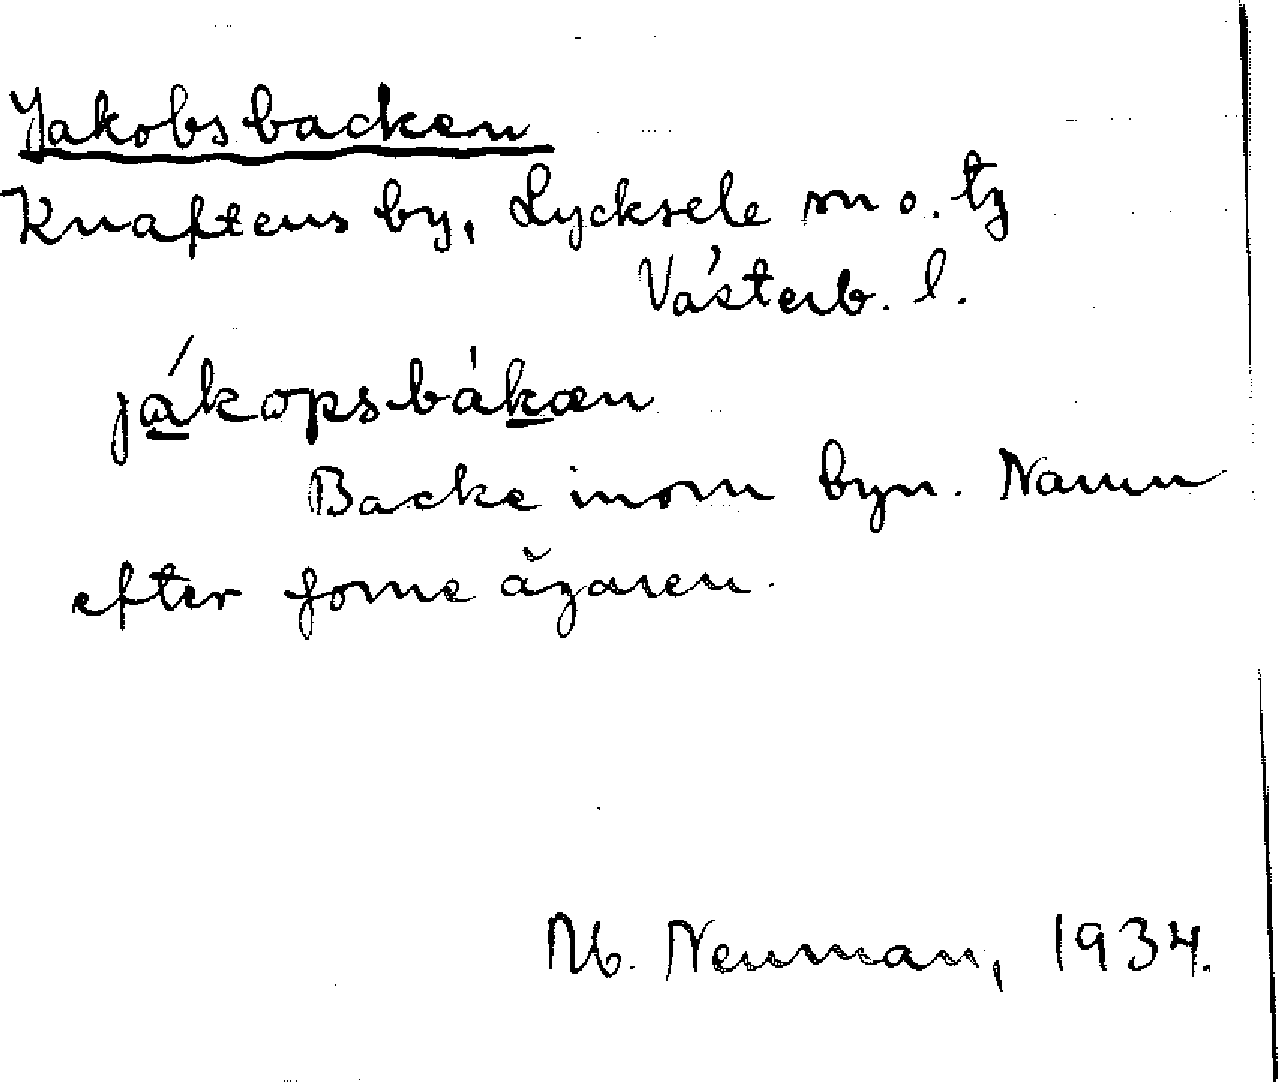 Jakobsbacken
Knaftens by, Lycksele sn o. tg
Västerb. l.
jákopsbákæn
Backe inom byn. Namn
efter förre ägaren.
Neuman, 1934.